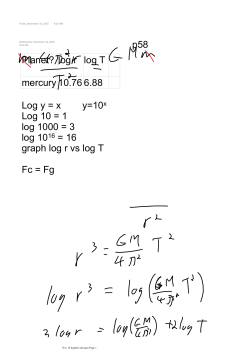 Planet? log r log T
mercury 10.76 6.88
Log y = x y=10ˣ
Log 10 = 1
log 1000 = 3
log 10¹⁶ = 16
graph log r vs log T
Fc = Fg
r²
r³ = GM/4π² T²
log r³ = log(GM/4π² T²)
3 log r = log(GM/4π²) + 2 log T